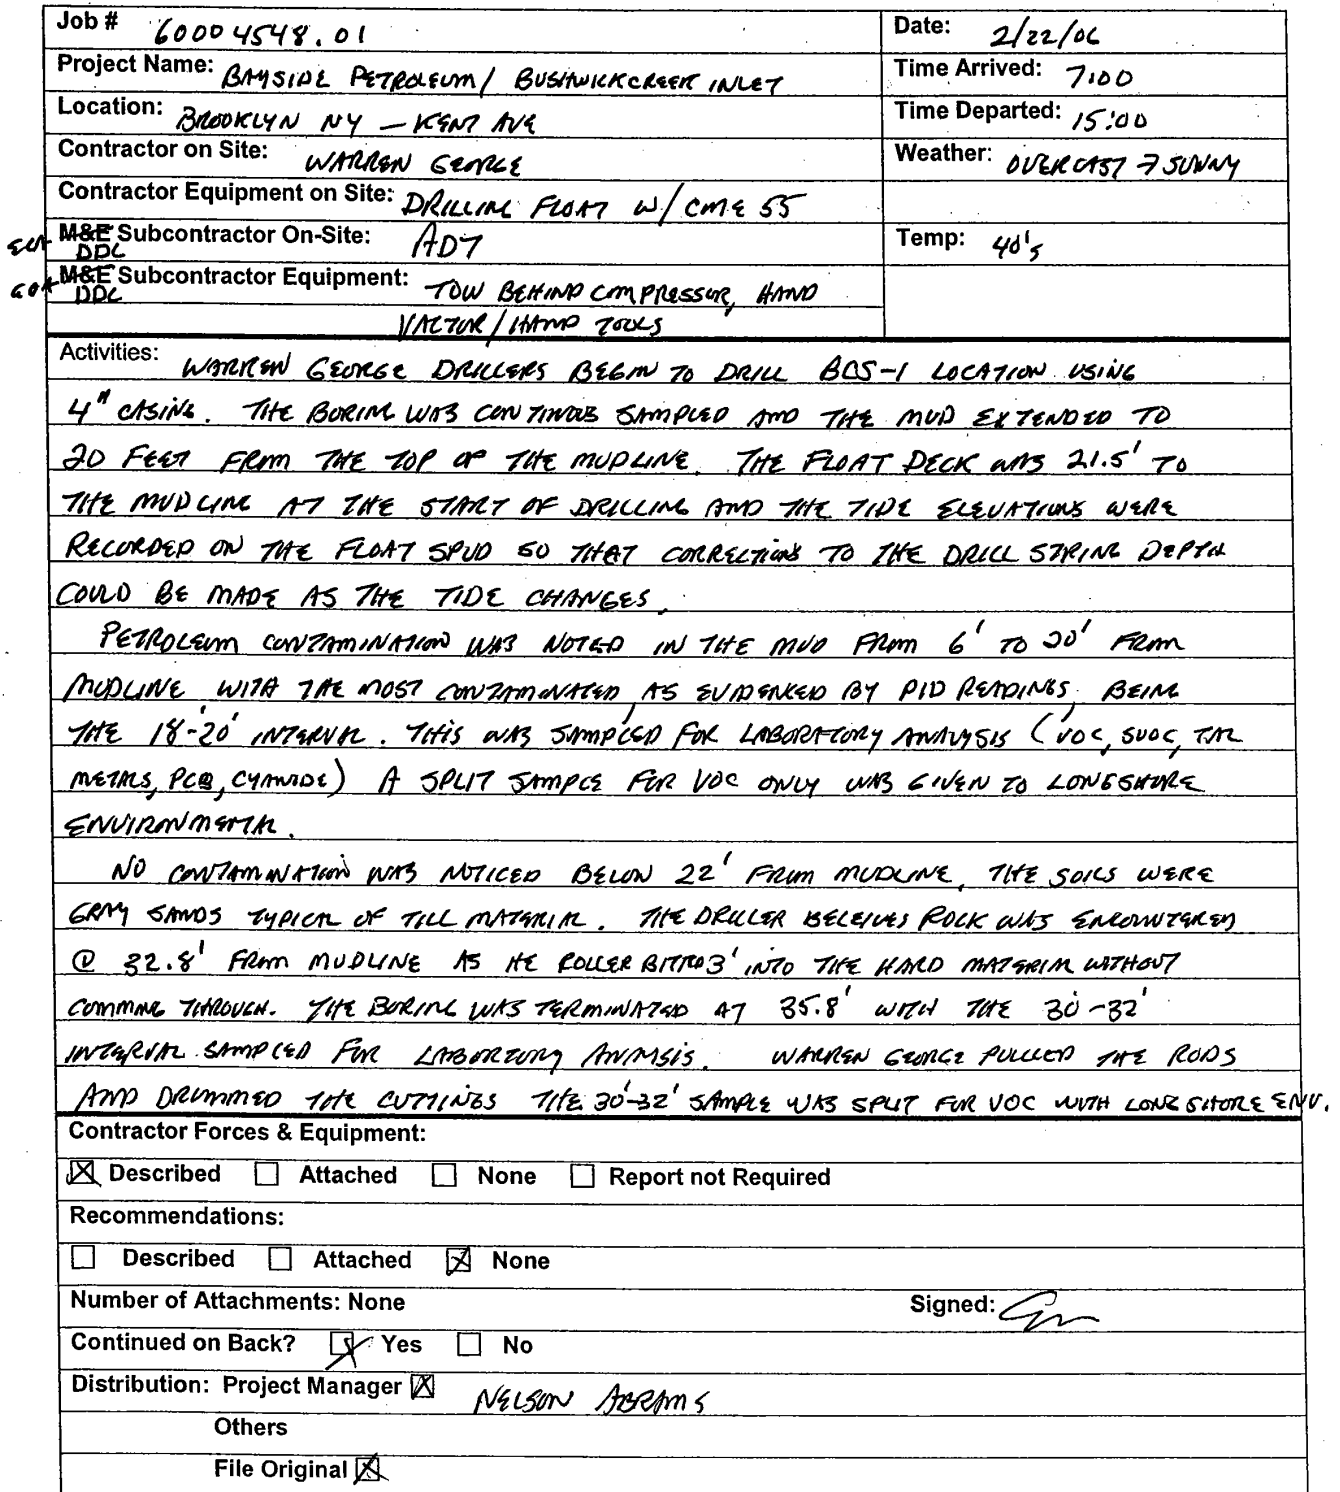 Job # 60004548.01 Date: 2/22/06
Project Name: BAYSIDE PETROLEUM / BUSHWICK CREEK INLET Time Arrived: 7:00
Location: BROOKLYN NY - KENT AVE Time Departed: 15:00
Contractor on Site: WARREN GEORGE Weather: OVERCAST → SUNNY
Contractor Equipment on Site: DRILLING FLOAT W/ CME 55
M&E Subcontractor On-Site: ADT Temp: 40's
DDC
M&E Subcontractor Equipment: TOW BEHIND COMPRESSOR, HAND
DDC
VACTOR / HAND TOOLS
Activities: WARREN GEORGE DRILLERS BEGIN TO DRILL BCS-1 LOCATION USING
4" CASING. THE BORING WAS CONTINOUS SAMPLED AND THE MUD EXTENDED TO
20 FEET FROM THE TOP OF THE MUDLINE. THE FLOAT DECK WAS 21.5' TO
THE MUDLINE AT THE START OF DRILLING AND THE TIDE ELEVATIONS WERE
RECORDED ON THE FLOAT SPUD SO THAT CORRECTIONS TO THE DRILL STRING DEPTH
COULD BE MADE AS THE TIDE CHANGES.
PETROLEUM CONTAMINATION WAS NOTED IN THE MUD FROM 6' TO 20' FROM
MUDLINE WITH THE MOST CONTAMINATED, AS EVIDENCED BY PID READINGS, BEING
THE 18'-20' INTERVAL. THIS WAS SAMPLED FOR LABORATORY ANALYSIS (VOC, SVOC, TAL
METALS, PCB, CYANIDE) A SPLIT SAMPLE FOR VOC ONLY WAS GIVEN TO LONGSHORE
ENVIRONMENTAL.
NO CONTAMINATION WAS NOTICED BELOW 22' FROM MUDLINE, THE SOILS WERE
GRAY SANDS TYPICAL OF TILL MATERIAL. THE DRILLER BELEIVES ROCK WAS ENCOUNTERED
@ 32.8' FROM MUDLINE AS HE ROLLER BITTED 3' INTO THE HARD MATERIAL WITHOUT
COMMING THROUGH. THE BORING WAS TERMINATED AT 35.8' WITH THE 30'-32'
INTERVAL SAMPLED FOR LABORTORY ANALYSIS. WARREN GEORGE PULLED THE RODS
AND DRUMMED THE CUTTINGS THE 30'-32' SAMPLE WAS SPLIT FOR VOC WITH LONG SHORE ENV.
Contractor Forces & Equipment:
☒ Described ☐ Attached ☐ None ☐ Report not Required
Recommendations:
☐ Described ☐ Attached ☒ None
Number of Attachments: None Signed:
Continued on Back? ☒ Yes ☐ No
Distribution: Project Manager ☒ NELSON ABRAMS
Others
File Original ☒